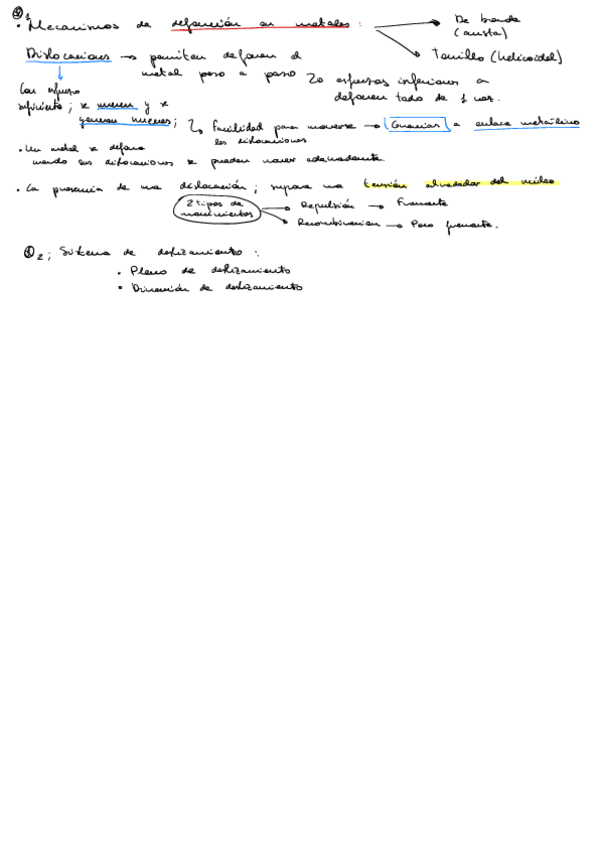 • Mecanismos de deformación en metales:
De borde
(arista)
Tornillo (helicoidal)
Dislocaciones → permiten deformar el
metal paso a paso
esfuerzos inferiores a
deformar todo de 1 vez.
Con esfuerzo
suficiente; se mueven y se
generan nuevas;
Facilidad para moverse → Gracias a enlace metálico
las dislocaciones
• Un metal se deforma
cuando sus dislocaciones se pueden mover adecuadamente.
• La presencia de una dislocación; supone una tensión alrededor del núcleo
2 tipos de
movimientos
Repulsión → Frecuente
Recombinación → Poco frecuente.
2; Sistema de deslizamiento:
• Plano de deslizamiento
• Dirección de deslizamiento